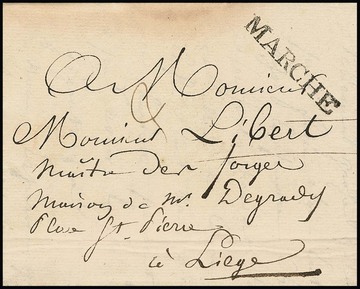 MARCHE
A Monsieur
Monsieur Libert
maître des forges
maison de Mr. Degrady
Place St. Pierre
à Liege